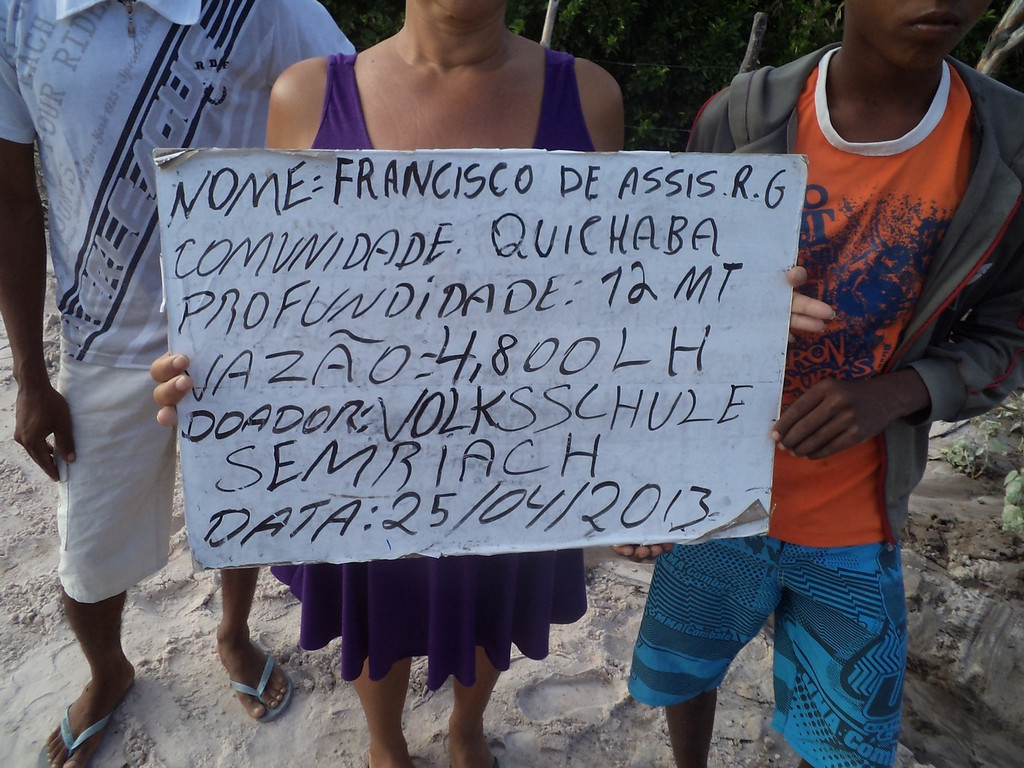 NOME: FRANCISCO DE ASSIS.R.G
COMUNIDADE. QUICHABA
PROFUNDIDADE: 12 MT
VAZÃO=4,800 LH
DOADOR: VOLKSSCHULE
SEMRIACH
DATA: 25/04/2013